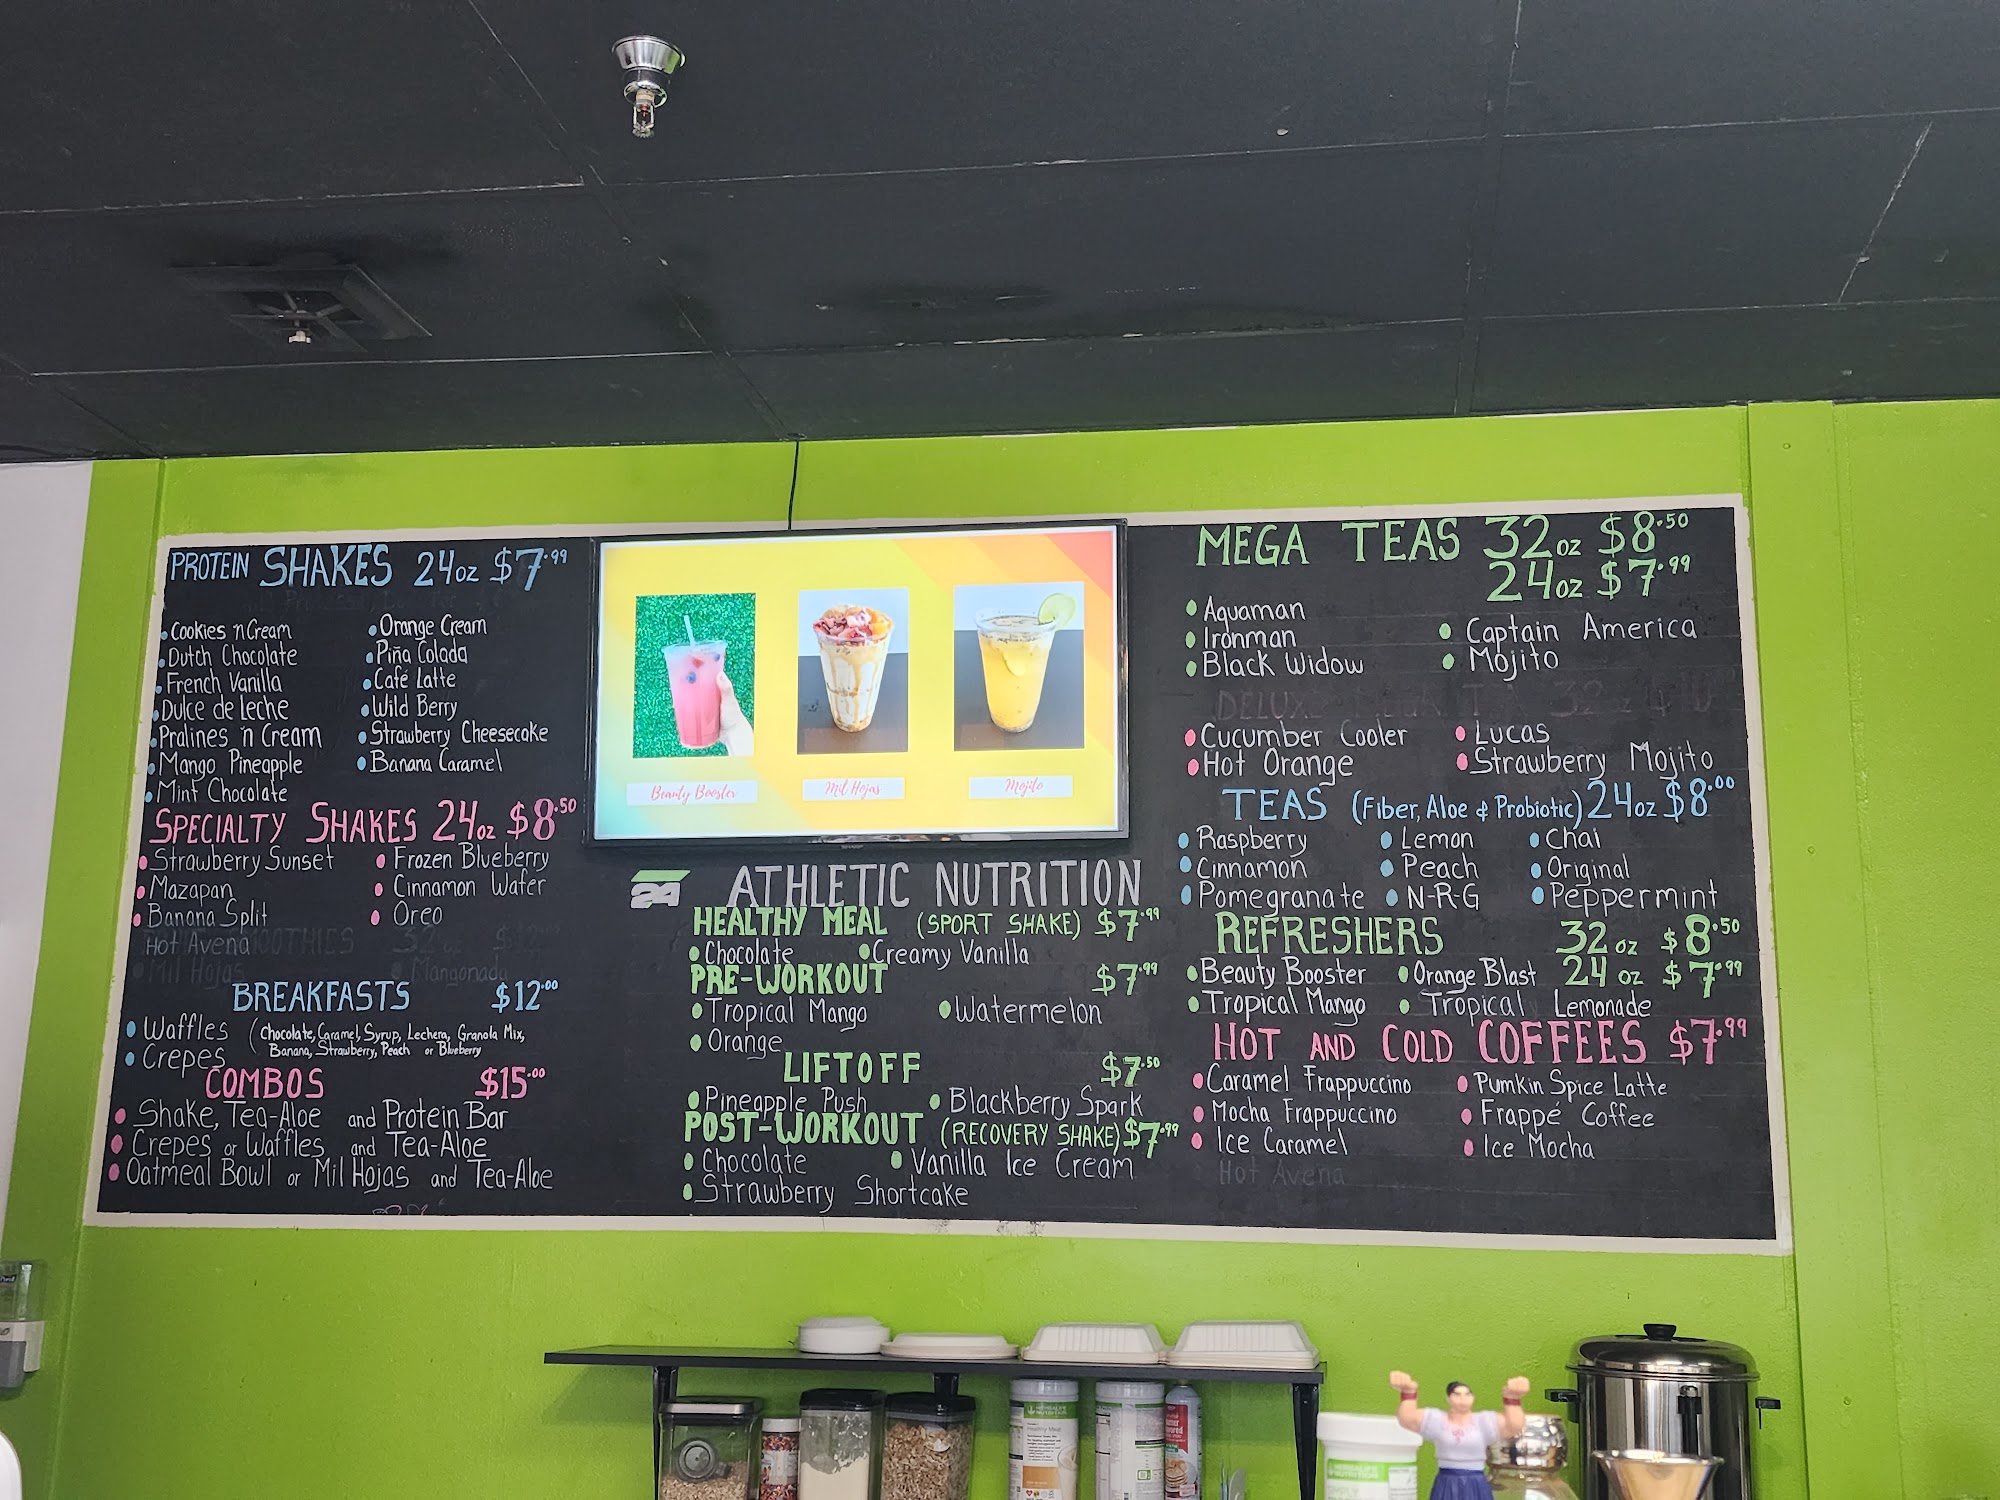 PROTEIN SHAKES 24oz $7.99
Cookies 'n Cream
Dutch Chocolate
French Vanilla
Dulce de leche
Pralines 'n Cream
Mango Pineapple
Mint Chocolate
Orange Cream
Piña Colada
Café Latte
Wild Berry
Strawberry Cheesecake
Banana Caramel
SPECIALTY SHAKES 24oz $8.50
Strawberry Sunset
Mazapan
Banana Split
Hot Avena
Mil Hojas
Frozen Blueberry
Cinnamon Wafer
Oreo
Mangonada
BREAKFASTS $12.00
Waffles (Chocolate, Caramel, Syrup, Lechera, Granola Mix,
Crepes Banana, Strawberry, Peach or Blueberry
COMBOS $15.00
Shake, Tea-Aloe and Protein Bar
Crepes or Waffles and Tea-Aloe
Oatmeal Bowl or Mil Hojas and Tea-Aloe
Beauty Booster
Mil Hojas
Mojito
SHARP
24 ATHLETIC NUTRITION
HEALTHY MEAL (SPORT SHAKE) $7.99
Chocolate Creamy Vanilla
PRE-WORKOUT $7.99
Tropical Mango Watermelon
Orange
LIFTOFF $7.50
Pineapple Push Blackberry Spark
POST-WORKOUT (RECOVERY SHAKE) $7.99
Chocolate Vanilla Ice Cream
Strawberry Shortcake
MEGA TEAS 32oz $8.50
24oz $7.99
Aquaman
Ironman
Black Widow
Captain America
Mojito
Cucumber Cooler Lucas
Hot Orange Strawberry Mojito
TEAS (Fiber, Aloe & Probiotic) 24oz $8.00
Raspberry Lemon Chai
Cinnamon Peach Original
Pomegranate N-R-G Peppermint
REFRESHERS 32oz $8.50
Beauty Booster Orange Blast 24oz $7.99
Tropical Mango Tropical Lemonade
HOT AND COLD COFFEES $7.99
Caramel Frappuccino Pumkin Spice Latte
Mocha Frappuccino Frappé Coffee
Ice Caramel Ice Mocha
Hot Avena
HERBALIFE
NUTRITION
Healthy Meal
HERBALIFE
NUTRITION